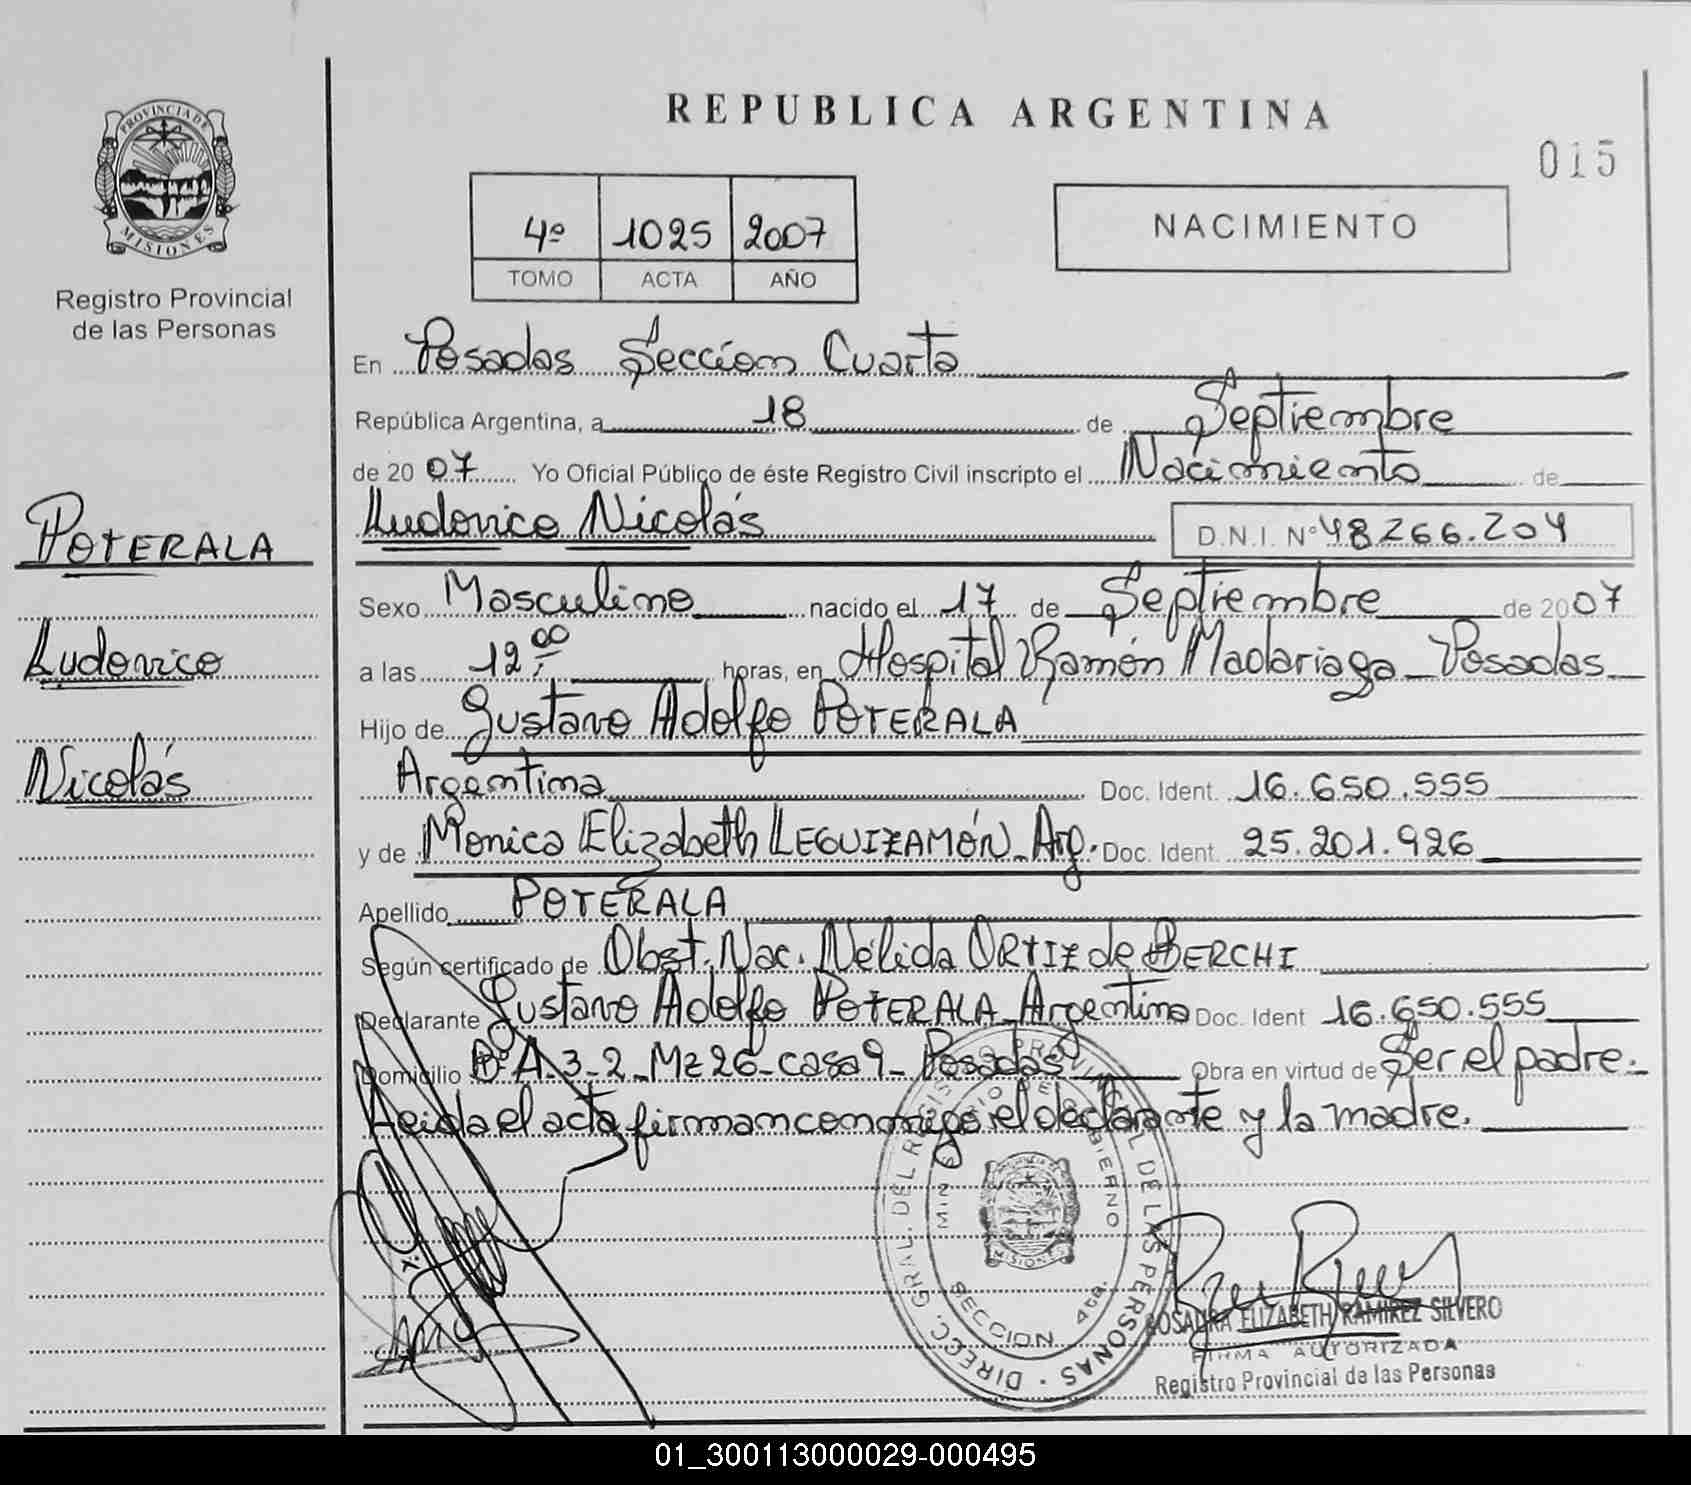 REPUBLICA ARGENTINA
015
PROVINCIA DE
MISIONES
Registro Provincial
de las Personas
4º 1025 2007
TOMO ACTA AÑO
NACIMIENTO
En Posadas Sección Cuarta
República Argentina, a 18 de Septiembre
de 2007 Yo Oficial Público de éste Registro Civil inscripto el Nacimiento de
Ludovico Nicolás D.N.I. Nº 48266.204
POTERALA
Ludovico
Nicolás
Sexo Masculino nacido el 17 de Septiembre de 2007
a las 12:00 horas, en Hospital Ramón Madariaga - Posadas
Hijo de Gustavo Adolfo POTERALA
Argentina Doc. Ident. 16.650.555
y de Monica Elizabeth LEGUIZAMÓN - Arg. Doc. Ident. 25.201.926
Apellido POTERALA
Según certificado de Obst. Nac. Nélida ORTIZ de BERCHI
Declarante Gustavo Adolfo POTERALA - Argentino Doc. Ident 16.650.555
Domicilio Bº A-3-2 - Mz 26 - casa 9 - Posadas Obra en virtud de Ser el padre.-
Leida el acta firman conmigo el declarante y la madre.
DIRECC. GRAL. DEL REGISTRO PROVINCIAL DE LAS PERSONAS
GOBIERNO
SECCION 4ta.
MISIONES
ROSAURA ELIZABETH RAMIREZ SILVERO
FIRMA AUTORIZADA
Registro Provincial de las Personas
01_300113000029-000495